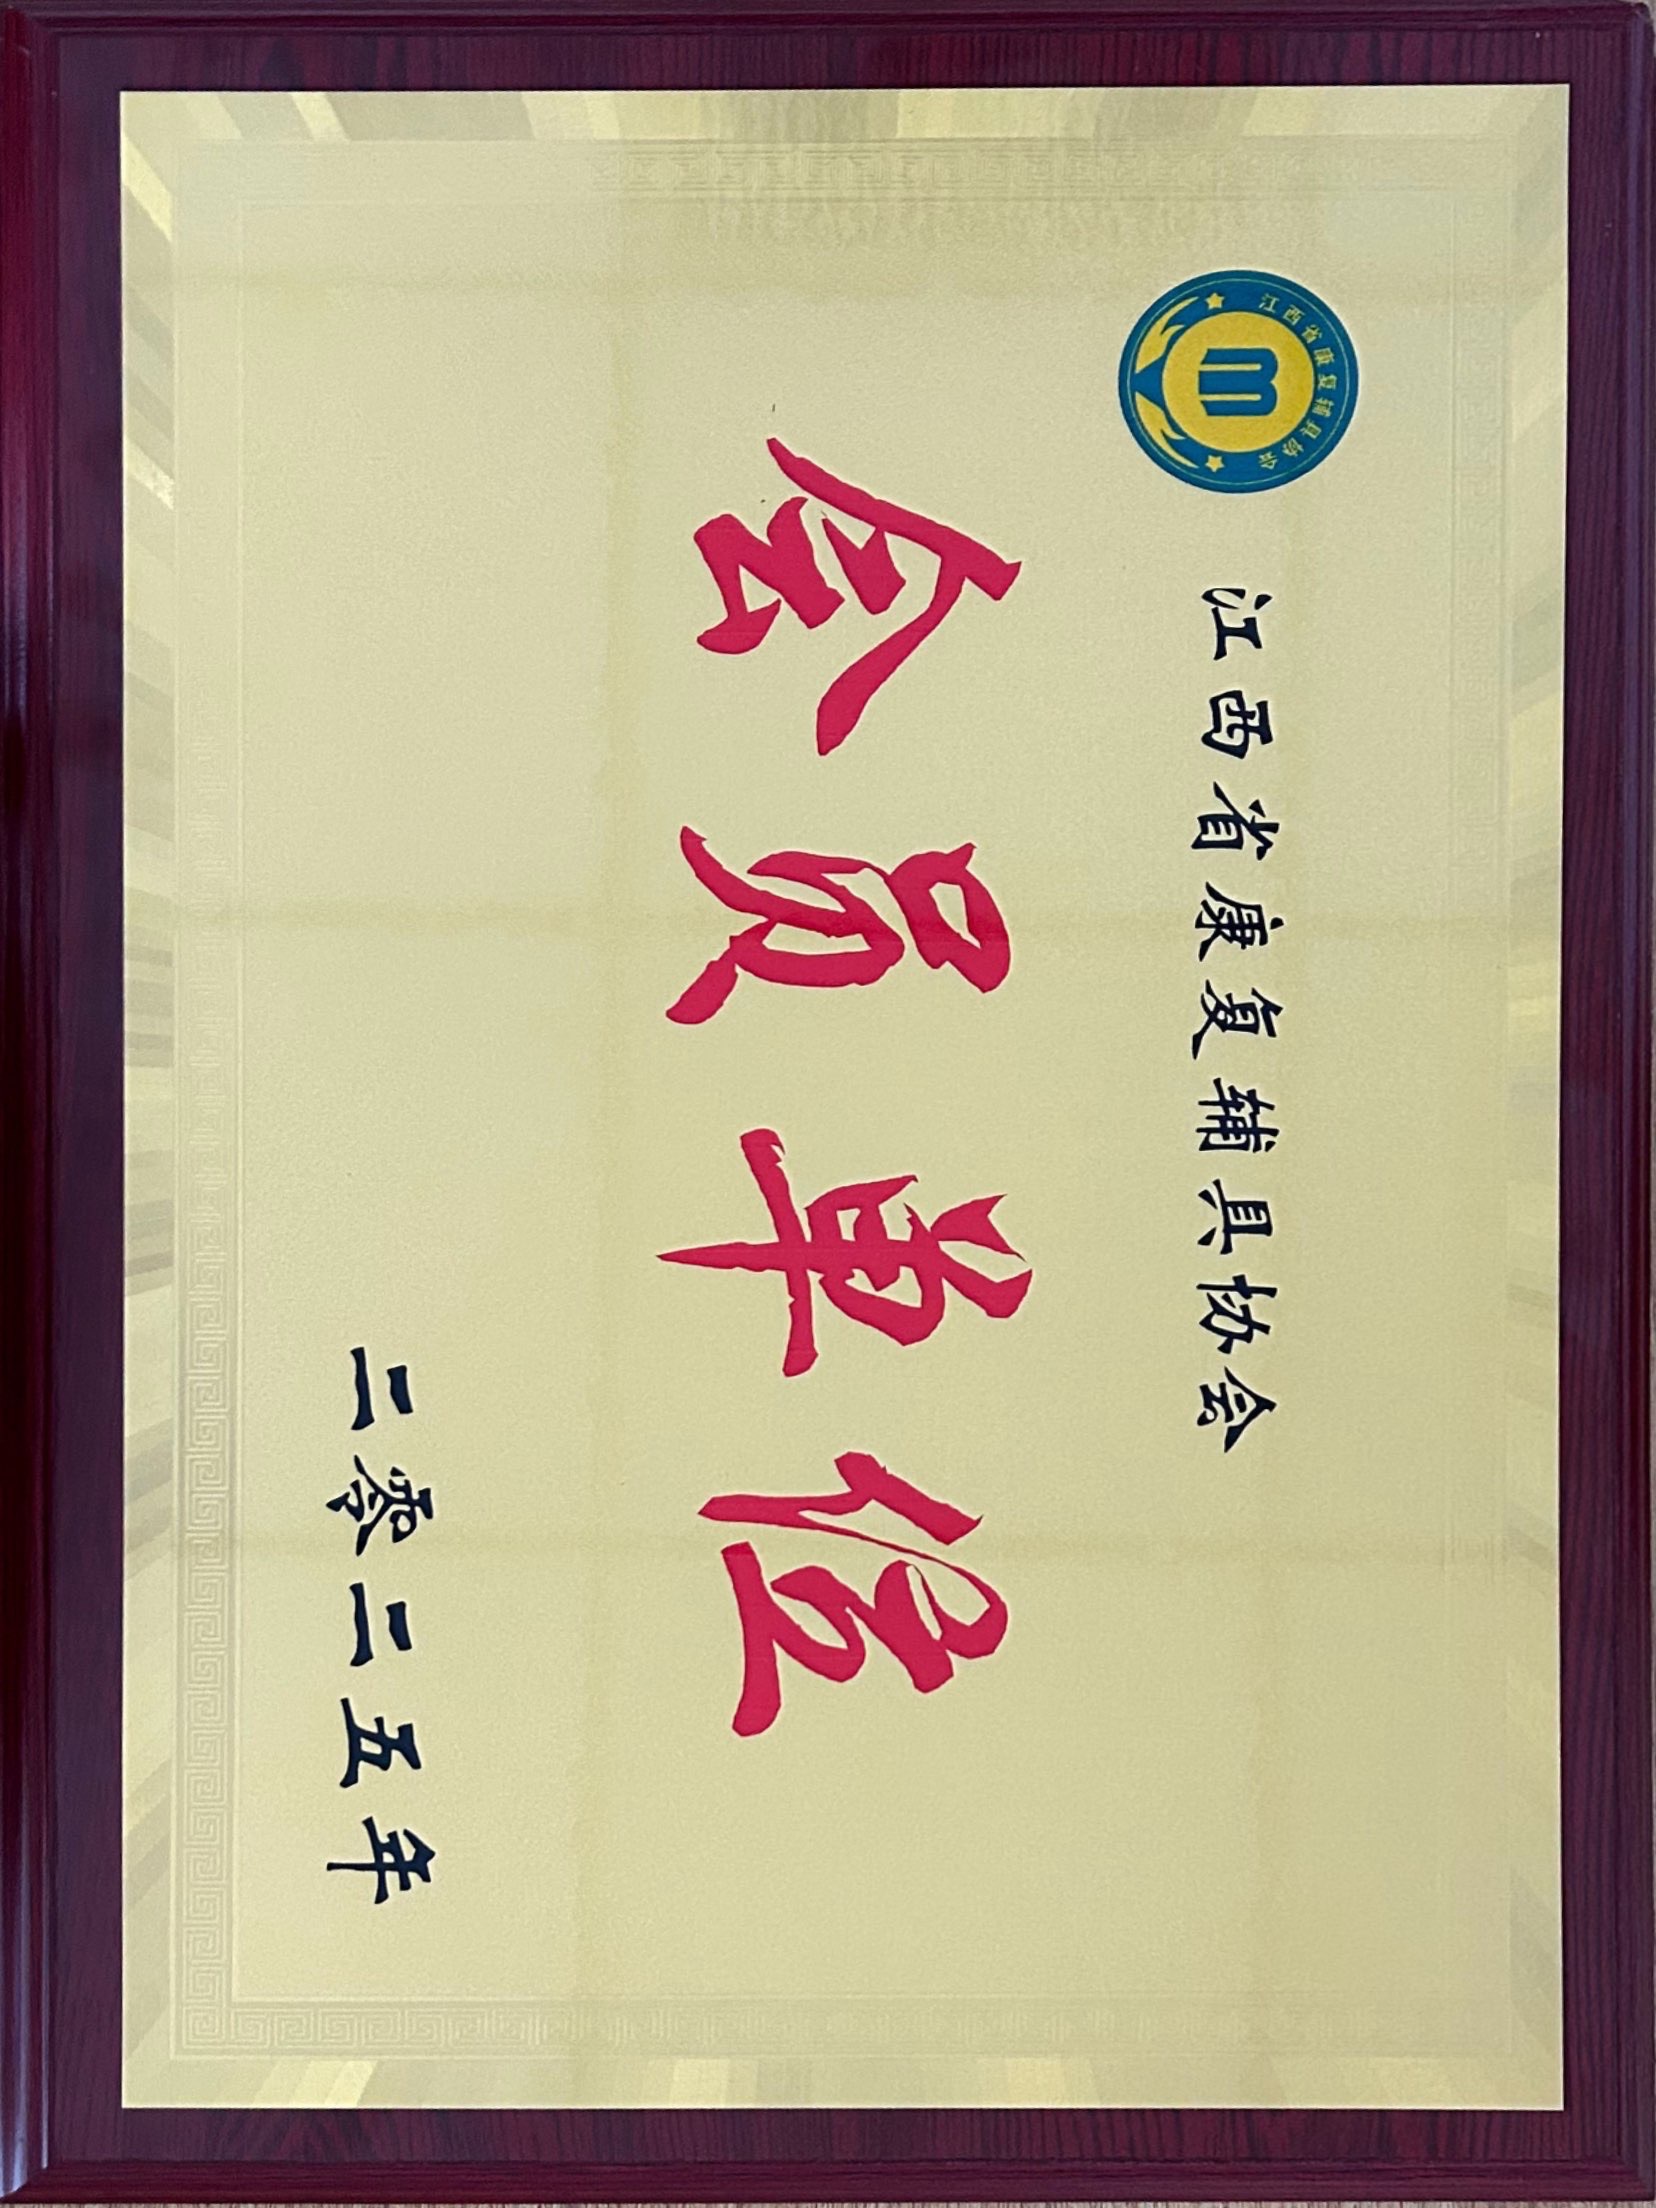 江西省康复辅具协会
江西省康复辅具协会
会员单位
二零二五年